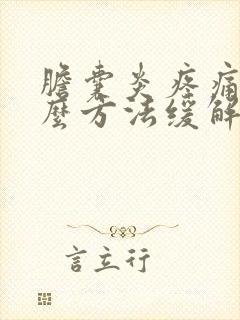 膽囊炎疼痛
麼方法緩解
言立行